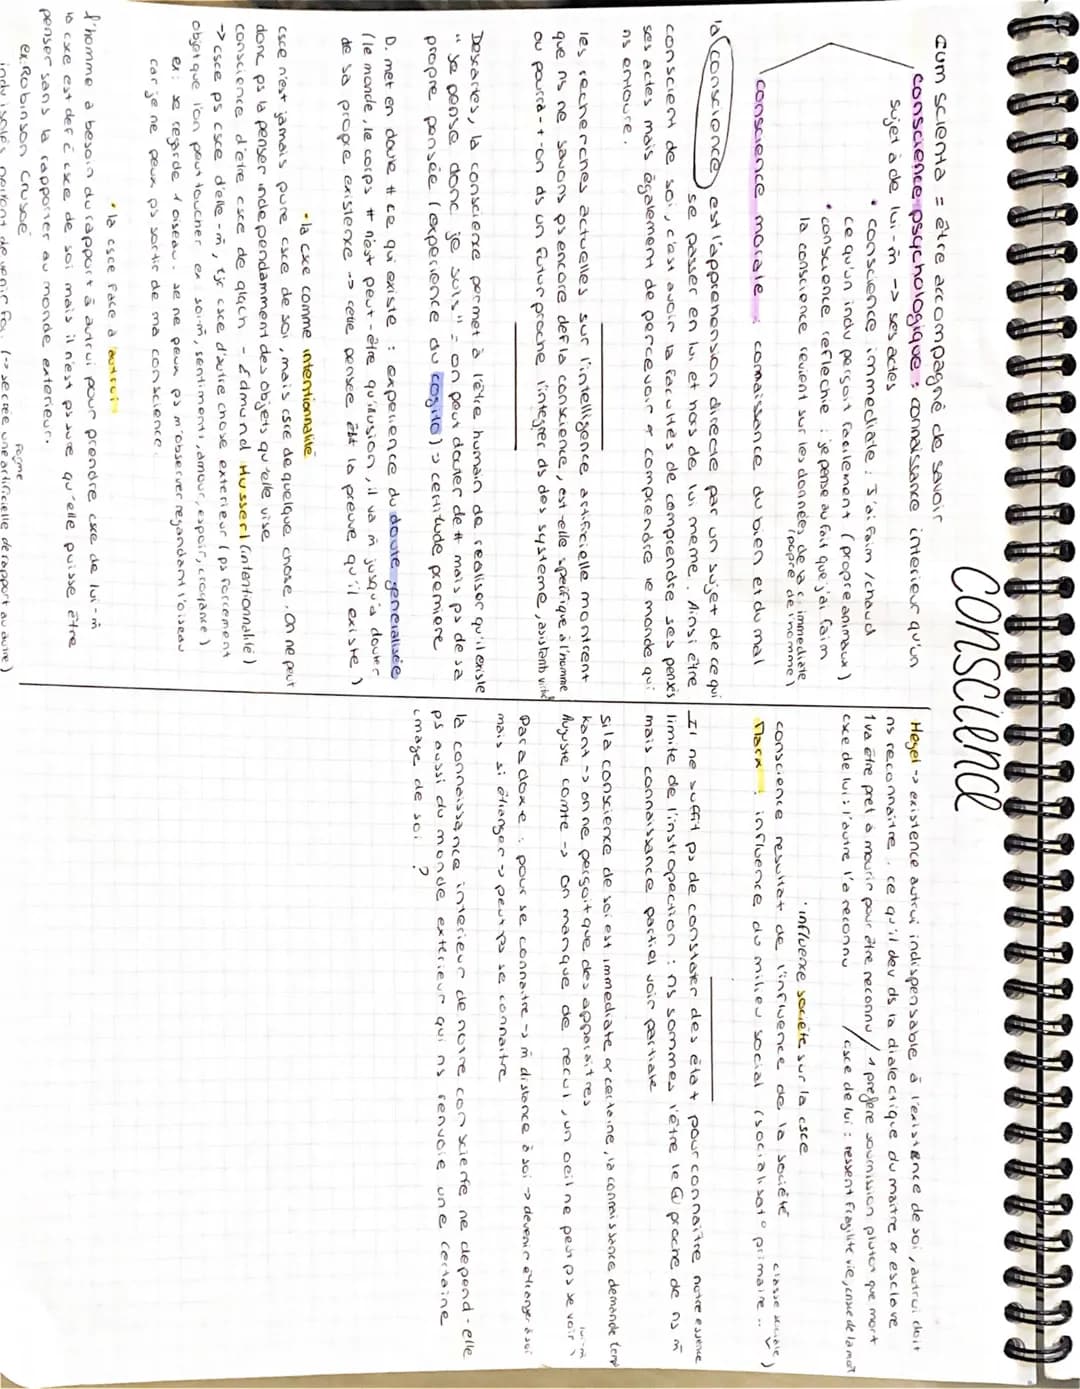 Conscience
Cum scientia = être accompagné de savoir
conscience psychologique : connaissance interieur qu'un
sujet à de lui-m̂ -> ses actes
• conscience immediate : J'ai faim / chaud
ce qu'un indvu perçoit facilement (propre animaux)
• conscience reflechie : je pense au fait que j'ai faim
la conscience revient sur les données de la c. immediate
(propre de l'homme)
conscience morale : connaissance du bien et du mal
la conscience est l'apprehension directe par un sujet de ce qui
se passer en lui et hors de lui meme. Ainsi être
conscient de soi, c'est avoir la facultés de comprendre ses pensés
ses actes mais également de percevoir et comprendre le monde qui
ns entoure.
les recherches actuelles sur l'intelligence artificielle montrent
que ns ne savons ps encore def la conscience, est elle spécifique à l'homme
ou pourra-t-on ds un futur proche l'integrer ds des systeme
Descartes, la conscience permet à l'être humain de realiser qu'il existe
"Je pense donc je suis" = on peut douter de tt mais ps de sa
propre pensée (experience du cogito) -> certitude premiere
D. met en doute tt ce qui existe : experience du doute généralisée
(le monde, le corps tt n'est peut-être qu'illusion, il va m̂ jusqu'a douter
de sa propre existence -> cette pensée est la preuve qu'il existe)
• la csce comme intentionnalité
csce n'est jamais pure csce de soi, mais csce de quelque chose. On ne peut
donc ps la penser independamment des objets qu'elle vise
conscience d'etre csce de qlqch - Edmund Husserl (intentionnalité)
-> csce ps csce d'elle-m̂, csce d'autre chose exterieur (ps forcement
objet que l'on peut toucher ex: soi-m̂, sentiments, amour, espoir, croyance)
ex: Je regarde 1 oiseau. Je ne peux ps m'observer regardant l'oiseau
car je ne peux ps sortir de ma conscience.
• la csce face à autrui
l'homme a besoin du rapport à autrui pour prendre csce de lui-m̂
la csce est der csce de soi mais il n'est ps sure qu'elle puisse être
penser sans la rapporter au monde exterieur.
ex: Robinson Crusoé
indvu isolés, devenir fou (-> se crée une forme artificielle de rapport au autre)
Hegel -> existence autrui indispensable à l'existence de soi, autrui doit
ns reconnaitre. ce qu'il dev ds la dialectique du maitre et esclave
1 va être pret à mourir pour être reconnu / 1 préfere soumission plutot que mort
csce de lui : l'autre l'a reconnu / csce de lui : ressent fragilité vie, csce de la mort
• influence société sur la csce
conscience resultat de l'influence de la société
Marx : influence du milieu social (socialisat° primaire.. classe sociale)
Il ne suffit ps de constater des état pour connaitre notre essence
limite de l'instropection : ns sommes l'être le + proche de ns m̂
mais connaissance partiel voir partiale
Si la conscience de soi est immediate et certaine, la connaissance demande temp
Kant -> on ne perçoit que des apparaitres
Auguste Comte -> on manque de recul, un oeil ne peut ps se voir lui-m̂
Paradoxe : pour se connaitre -> m̂ distance à soi -> devenir étranger à soi
mais si étranger -> peut ps se connaitre
la connaissance interieur de notre conscience ne depend-elle
ps aussi du monde exterieur qui ns renvoie une certaine
image de soi ?